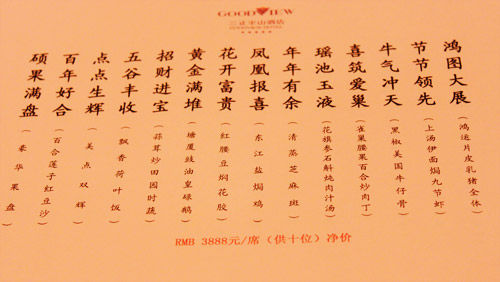 GOODVIEW
三正半山酒店
鸿图大展（鸿运片皮乳猪全体）
节节领先（上汤伊面焗九节虾）
牛气冲天（黑椒美国牛仔骨）
喜筑爱巢（雀巢腰果百合炒肉丁）
瑶池玉液（花旗参石斛炖肉汁汤）
年年有余（清蒸芝麻斑）
凤凰报喜（东江盐焗鸡）
花开富贵（红腰豆焖花胶）
黄金满堆（塘厦豉油皇碌鹅）
招财进宝（蒜茸炒田园时蔬）
五谷丰收（飘香荷叶饭）
点点生辉（美点双辉）
百年好合（百合莲子红豆沙）
硕果满盘（豪华果盘）
RMB 3888元/席（供十位）净价